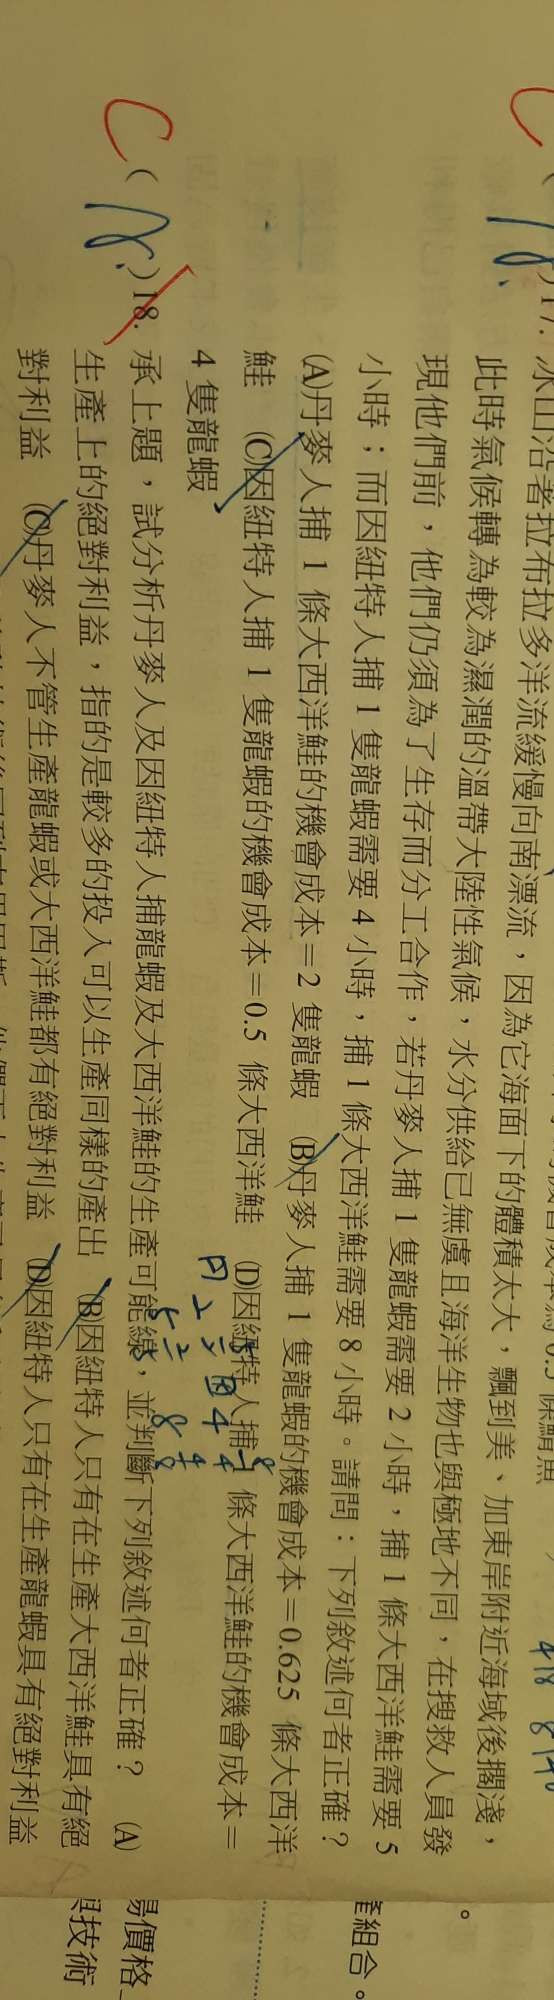 C
(B)17. 冰山沿著拉布拉多洋流緩慢向南漂流，因為它海面下的體積太大，飄到美、加東岸附近海域後擱淺，
此時氣候轉為較為濕潤的溫帶大陸性氣候，水分供給已無虞且海洋生物也與極地不同，在搜救人員發
現他們前，他們仍須為了生存而分工合作，若丹麥人捕 1 隻龍蝦需要 2 小時，捕 1 條大西洋鮭需要 5
小時；而因紐特人捕 1 隻龍蝦需要 4 小時，捕 1 條大西洋鮭需要 8 小時。請問：下列敘述何者正確？
(A)丹麥人捕 1 條大西洋鮭的機會成本＝2 隻龍蝦　(B)丹麥人捕 1 隻龍蝦的機會成本＝0.625 條大西洋
鮭　(C)因紐特人捕 1 隻龍蝦的機會成本＝0.5 條大西洋鮭　(D)因紐特人捕 1 條大西洋鮭的機會成本＝
4 隻龍蝦
C
(B)18. 承上題，試分析丹麥人及因紐特人捕龍蝦及大西洋鮭的生產可能線，並判斷下列敘述何者正確？　(A)
生產上的絕對利益，指的是較多的投入可以生產同樣的產出　(B)因紐特人只有在生產大西洋鮭具有絕
對利益　(C)丹麥人不管生產龍蝦或大西洋鮭都有絕對利益　(D)因紐特人只有在生產龍蝦具有絕對利益
產組合。
易價格
技術